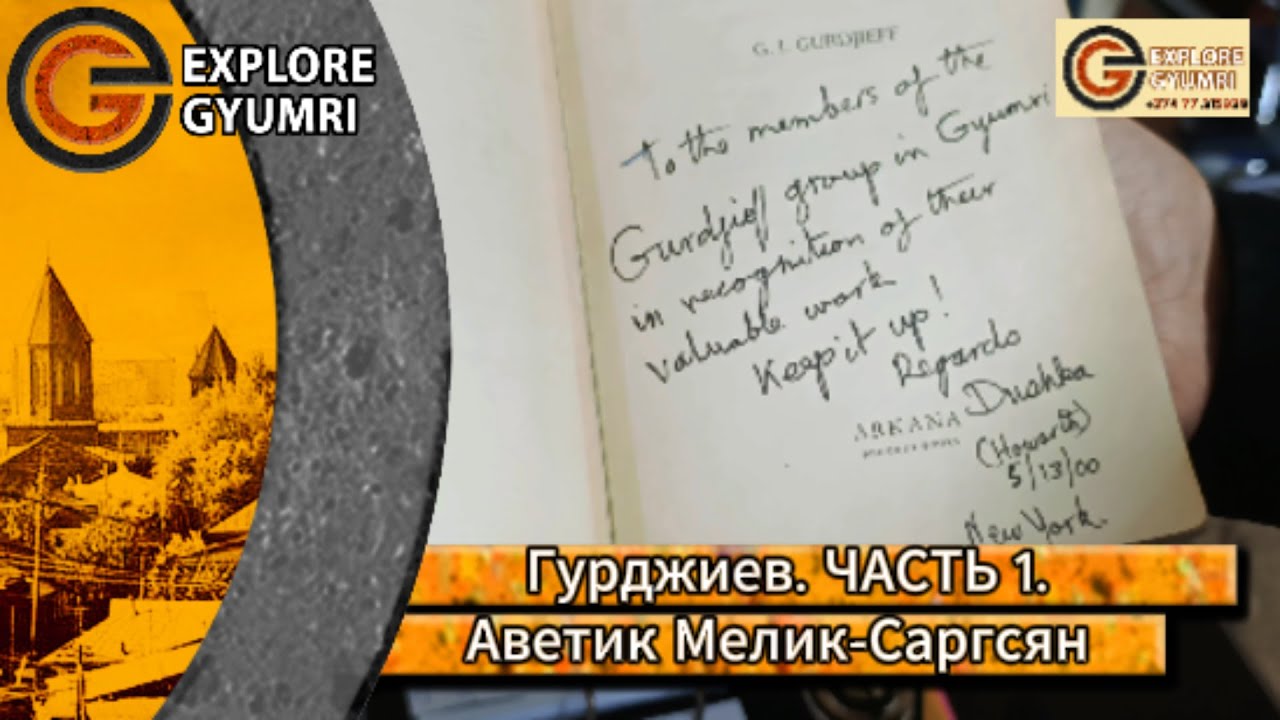 EXPLORE
GYUMRI
EXPLORE
GYUMRI
G. I. GURDJIEFF
To the members of the
Gurdjieff group in Gyumri
in recognition of their
valuable work
Keep it up!
Regards
Dushka
ARKANA
(Howarth)
5/13/00
New York
Гурджиев. ЧАСТЬ 1.
Аветик Мелик-Саргсян